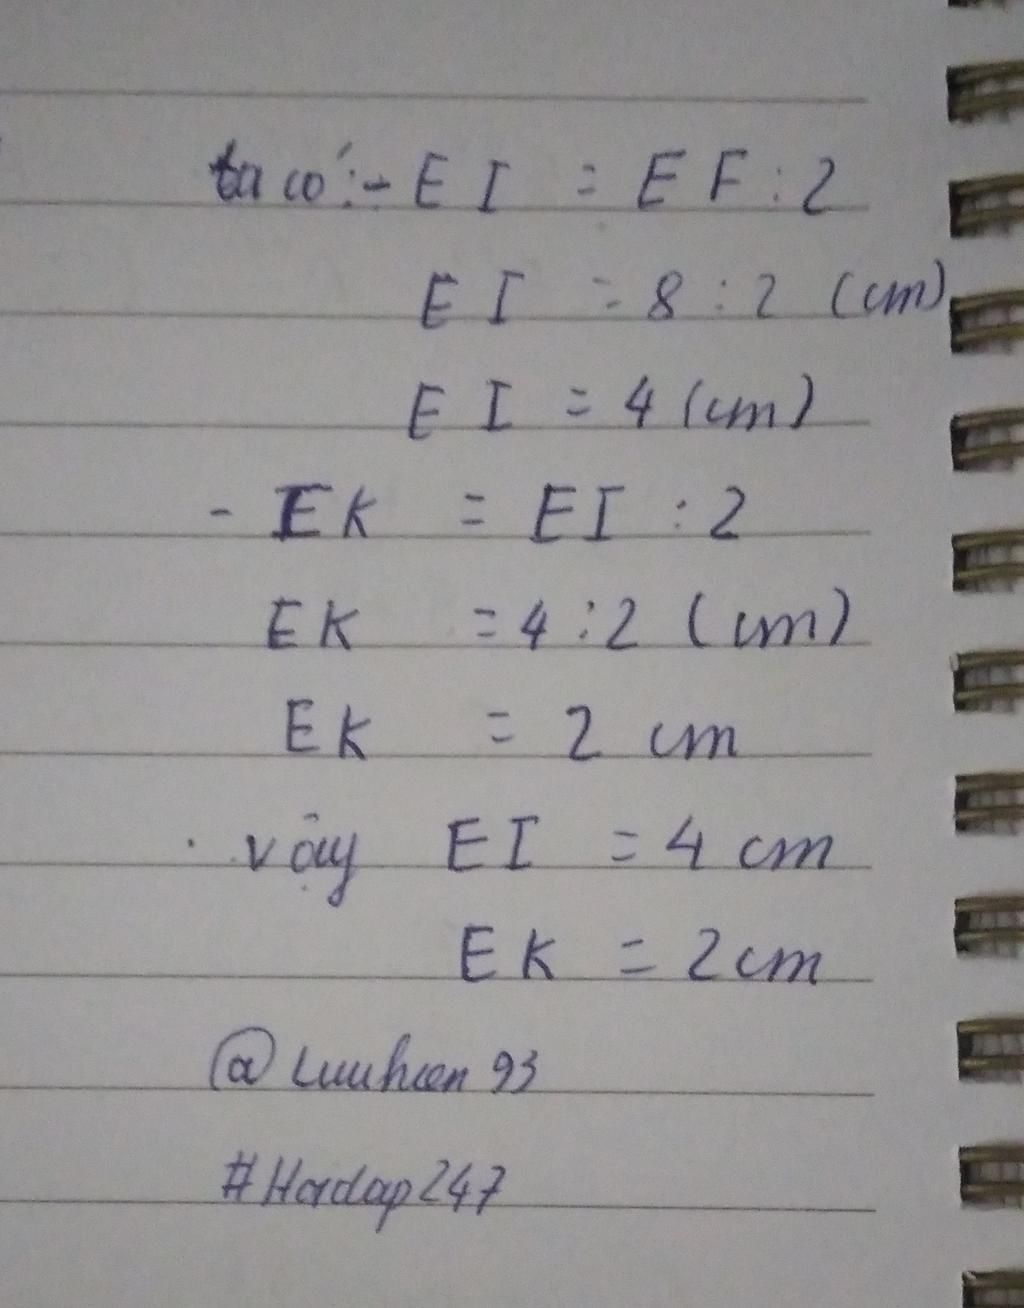 ta có: - EI = EF : 2
EI = 8 : 2 (cm)
EI = 4 (cm)
- EK = EI : 2
EK = 4 : 2 (cm)
EK = 2 cm
vậy EI = 4 cm
EK = 2cm
@Luuhien93
#Hoidap247